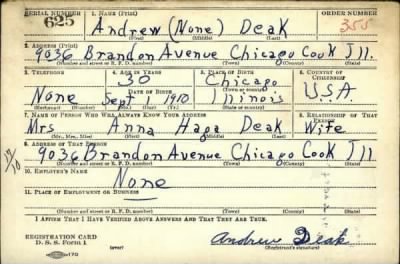 SERIAL NUMBER 1. NAME (Print) ORDER NUMBER
625 Andrew (None) Deak 355
(First) (Middle) (Last)
2. ADDRESS (Print)
9036 Brandon Avenue Chicago Cook Ill.
(Number and street or R. F. D. number) (Town) (County) (State)
3. TELEPHONE 4. AGE IN YEARS 5. PLACE OF BIRTH 6. COUNTRY OF CITIZENSHIP
30 Chicago
DATE OF BIRTH (Town or county)
None Sept 1910 Illinois U.S.A
(Exchange) (Number) (Mo.) (Day) (Yr.) (State or country)
7. NAME OF PERSON WHO WILL ALWAYS KNOW YOUR ADDRESS 8. RELATIONSHIP OF THAT PERSON
Mrs Anna Haga Deak Wife
(Mr., Mrs., Miss) (First) (Middle) (Last)
9. ADDRESS OF THAT PERSON
9036 Brandon Avenue Chicago Cook Ill
(Number and street or R. F. D. number) (Town) (County) (State)
10. EMPLOYER'S NAME
None
11. PLACE OF EMPLOYMENT OR BUSINESS
(Number and street or R. F. D. number) (Town) (County) (State)
I AFFIRM THAT I HAVE VERIFIED ABOVE ANSWERS AND THAT THEY ARE TRUE.
REGISTRATION CARD
D. S. S. Form 1 (over) Andrew Deak
(Registrant's signature)